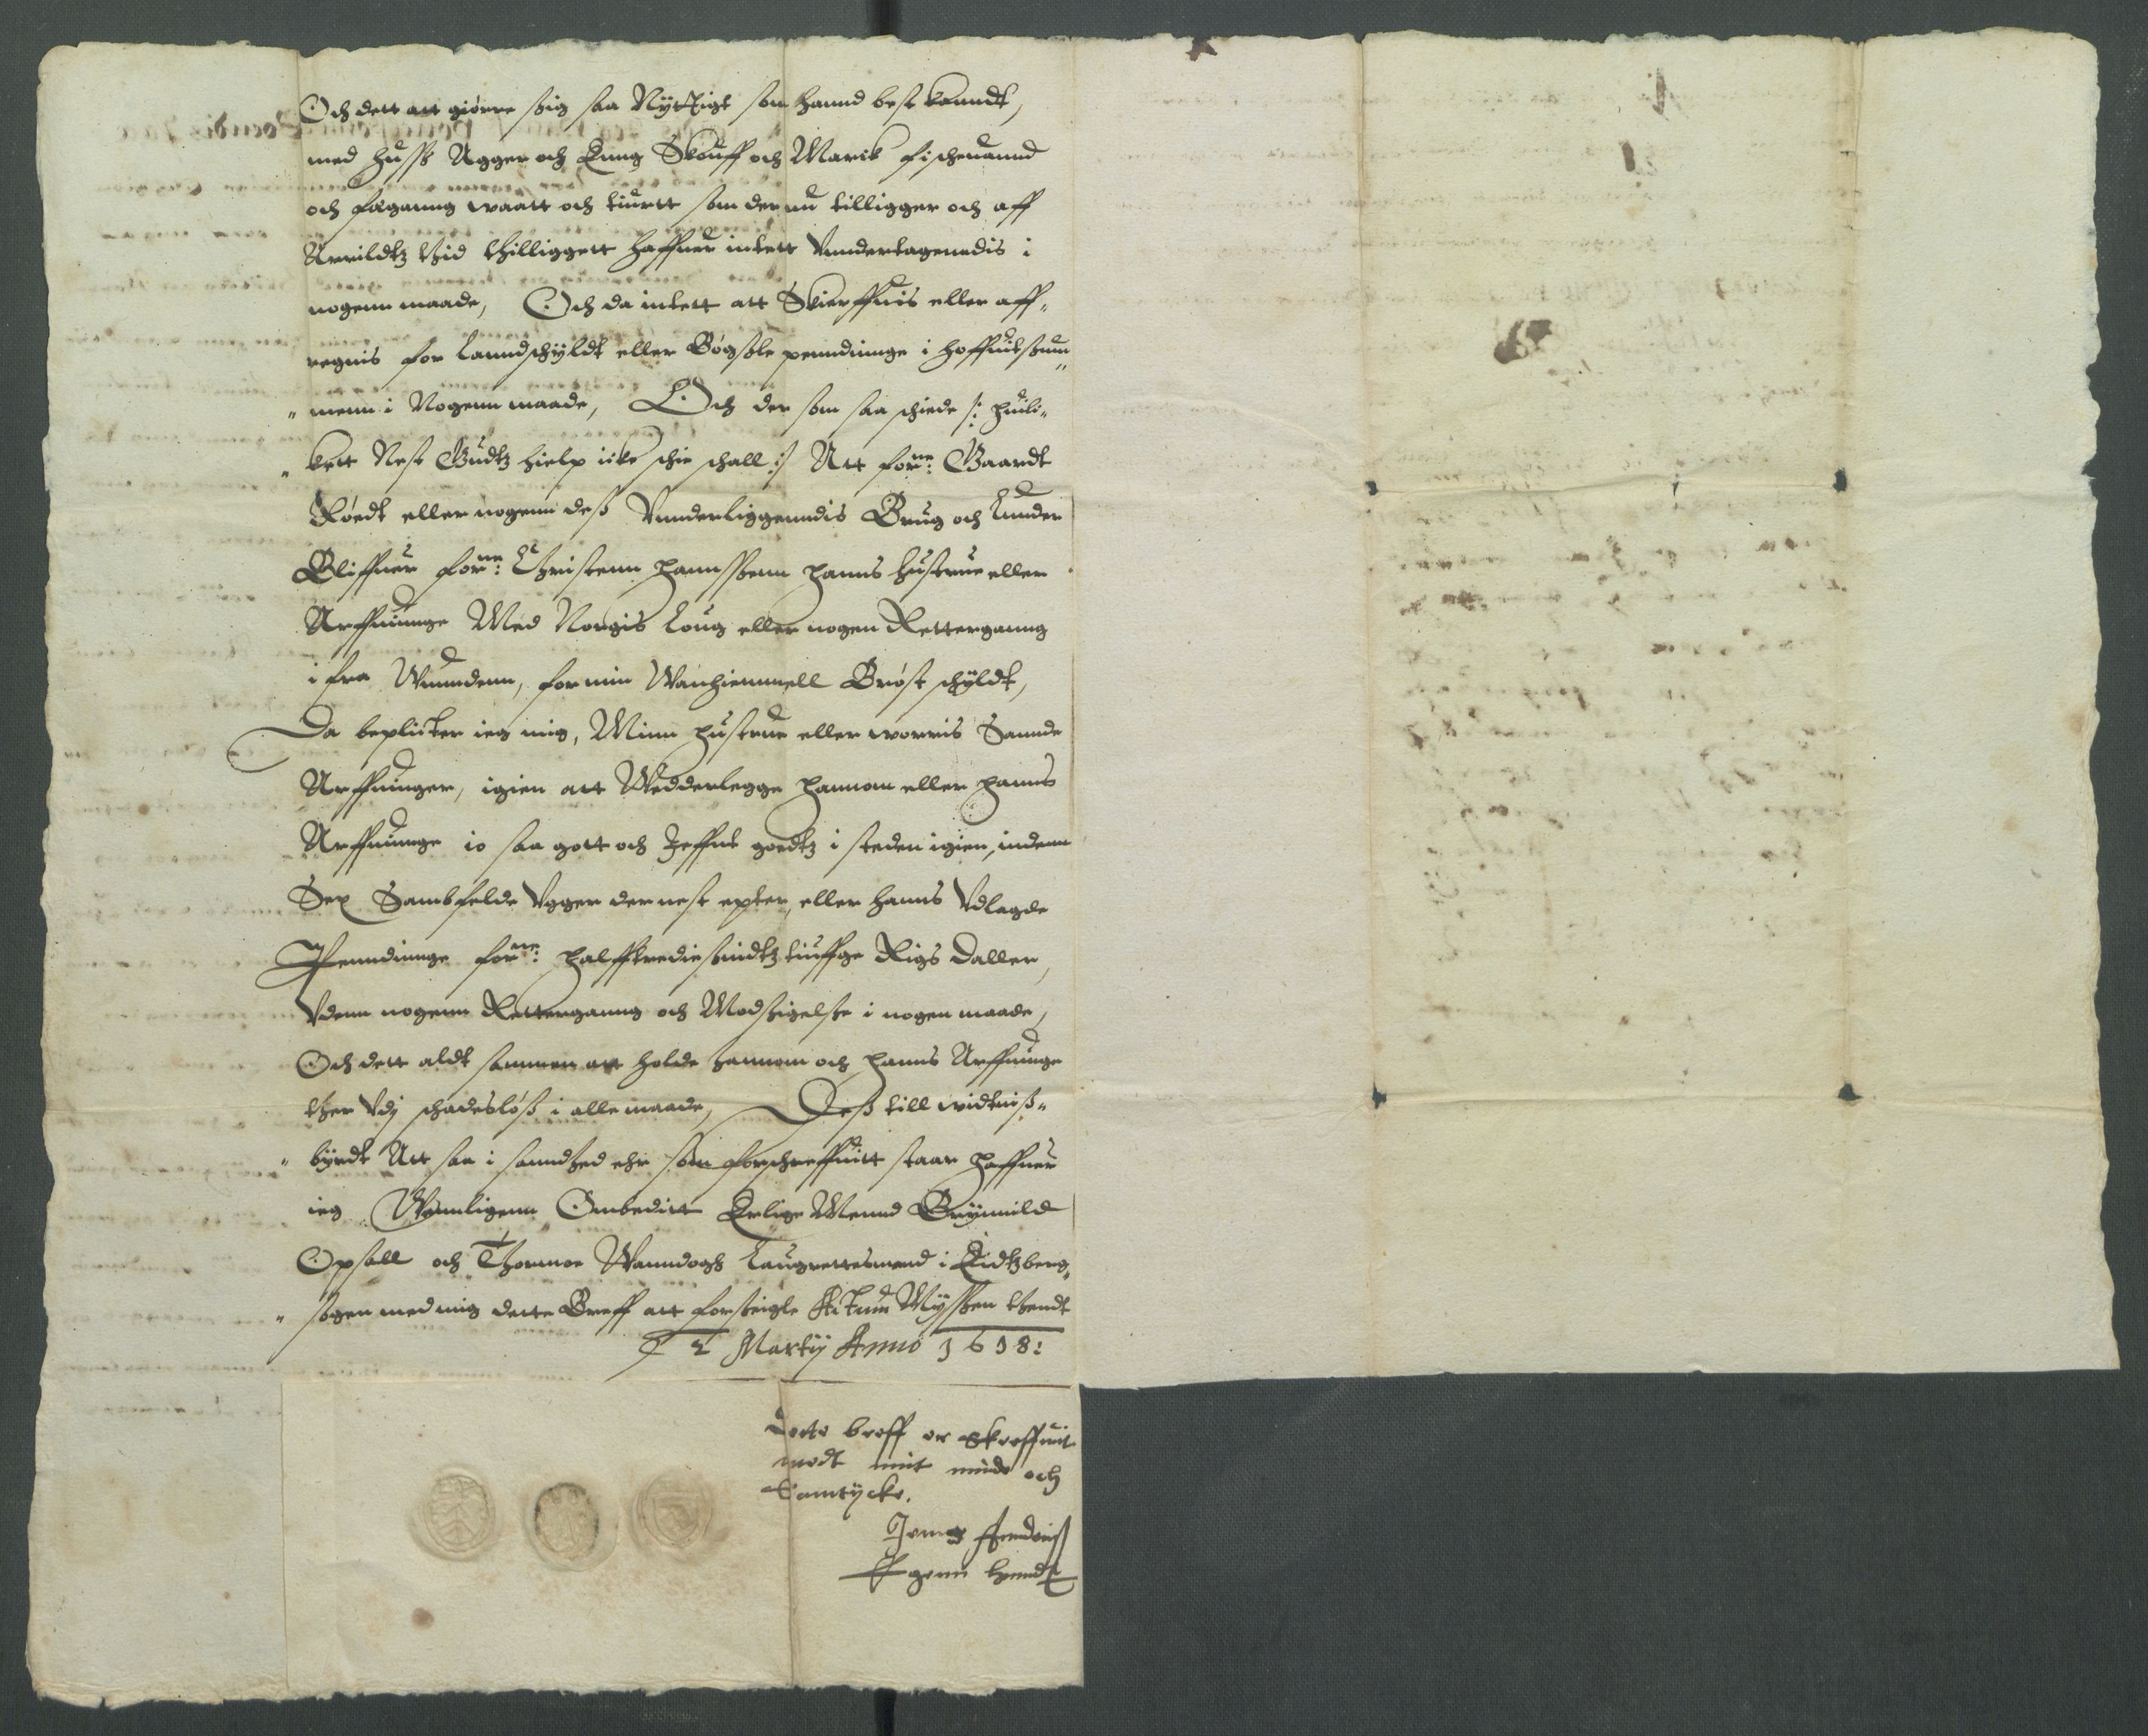 Och dett att giørre ßig saa Nyttigt som hannd best kanndt,
med Hußß Agger och Enng Skouff och Marck fischeuannd
och fæganng waatt och tiurtt som der nu tilligger och aff
Arrildtz tid thilliggett haffuer intett Vnndertagenndis i
nogenn maade, Och da intett att Skierffuis eller aff„
regnis for Lanndschyldt eller Bøgßle penndinnge i hoffuitßum„
„ menn i Nogenn maade, Och der som saa schiede /: huili„
„ kett Nest Gudtz hielp icke schie schall :/ Att forne: Gaardt
Røedt eller nogenn deß Vnnderliggenndis Brug och Lunder
Bliffuer forne: Christenn Hannßenn hanns hustrue eller
Arffuinnge Med Norgis Loug eller nogen Retterganng
i fra Wunndenn, for min Wanhiemmell Brøst schyldt,
Da beplicter ieg mig, Minn hustrue eller worris Sannde
Arffuinger, igien att Wedderlegge hannom eller hanns
Arffuinnge io saa gott och Jeffnt goedtz i steden igien, indenn
Sex Sambfelde Vgger der nest epter, eller hanns Vdlagde
Penndinnge forne: halfftrediesindtztiuffge Rigs Daller,
Vdenn nogenn Retterganng och Modßigelße i nogen maade,
Och dett aldt sammen att holde hannom och hanns Arffuinge
ther Vdj schadesløß i alle maade, Deß till widtniß„
„ byrdt Att saa i sanndhed ehr som forschreffuitt staar haffuer
ieg Wennligenn Ombeditt Erlige Mennd Brynnild
Opsall och Thormoe Wanndogh Laugrettesmend i Eidtzberg„
„ sogen med mig dette Breff att forßeigle Actum Myßen thendt
2 Martij Anno 1618:
Dette breff er Skreffuit
medt mit minde och
Samtycke.
Jens
Egenn hanndt